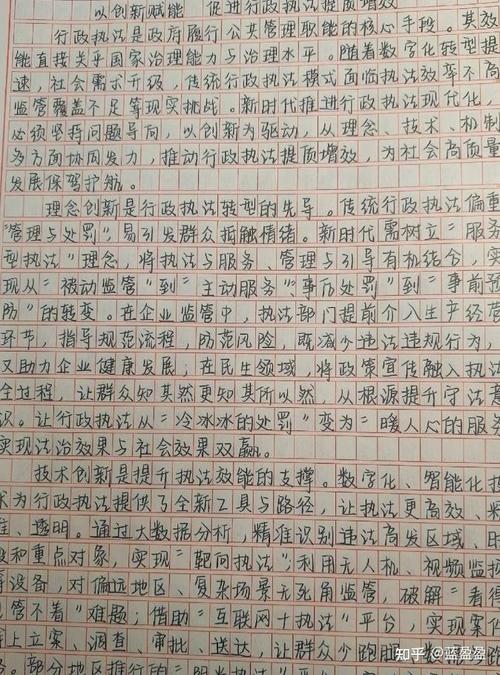 以创新赋能 促进行政执法提质增效
行政执法是政府履行公共管理职能的核心手段。其效
能直接关乎国家治理能力与治理水平。随着数字化转型提
速，社会需求升级，传统行政执法模式面临执法效率不高
监管覆盖不足等现实挑战。新时代推进行政执法现代化，
必须坚持问题导向，以创新为驱动，从理念、技术、机制
多方面协同发力，推动行政执法提质增效，为社会高质量
发展保驾护航。
理念创新是行政执法转型的先导。传统行政执法偏重
“管理与处罚”易引发群众抵触情绪。新时代需树立“服务
型执法”理念，将执法与服务、管理与引导有机结合，实
现从“被动监管”到“主动服务”、“事后处罚”到“事前预
防”的转变。在企业监管中，执法部门提前介入生产经营
环节，指导规范流程，防范风险，既减少违法违规行为，
又助力企业健康发展；在民生领域，将政策宣传融入执法
全过程，让群众知其然更知其所以然，从根源提升守法意
识。让行政执法从“冷冰冰的处罚”变为“暖人心的服务
实现法治效果与社会效果双赢。
技术创新是提升执法效能的支撑。数字化、智能化技
术为行政执法提供了全新工具与路径，让执法更高效、精
准、透明。通过大数据分析，精准识别违法高发区域、时
段和重点对象，实现“靶向执法”；利用无人机、视频监控
等设备，对偏远地区、复杂场景无死角监管，破解“看得
见管不着”难题；借助“互联网+执法”平台，实现案件
网上立案、调查、审批、送达，让群众少跑腿
部分地区推行的“阳光执法”
知乎 @蓝盈盈